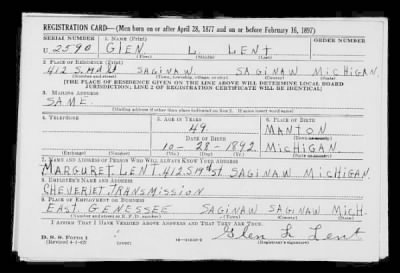 REGISTRATION CARD—(Men born on or after April 28, 1877 and on or before February 16, 1897)
SERIAL NUMBER 1. NAME (Print) ORDER NUMBER
U 2590 GLEN L. LENT
(First) (Middle) (Last)
2. PLACE OF RESIDENCE (Print)
412 S. SAGINAW SAGINAW MICHIGAN
(Number and street) (Town, township, village, or city) (County) (State)
[THE PLACE OF RESIDENCE GIVEN ON THE LINE ABOVE WILL DETERMINE LOCAL BOARD
JURISDICTION; LINE 2 OF REGISTRATION CERTIFICATE WILL BE IDENTICAL]
3. MAILING ADDRESS
SAME.
[Mailing address if other than place indicated on line 2. If same insert word same]
4. TELEPHONE 5. AGE IN YEARS 6. PLACE OF BIRTH
49. MANTON
DATE OF BIRTH (Town or county)
10-28-1892. MICHIGAN.
(Exchange) (Number) (Mo.) (Day) (Yr.) (State or country)
7. NAME AND ADDRESS OF PERSON WHO WILL ALWAYS KNOW YOUR ADDRESS
MARGURET LENT. 412 S. ST SAGINAW MICHIGAN.
8. EMPLOYER'S NAME AND ADDRESS
CHEVERIET TRANSMISSION
9. PLACE OF EMPLOYMENT OR BUSINESS
EAST. GENESSEE SAGINAW SAGINAW MICH.
(Number and street or R. F. D. number) (Town) (County) (State)
I AFFIRM THAT I HAVE VERIFIED ABOVE ANSWERS AND THAT THEY ARE TRUE.
D. S. S. Form 1
(Revised 4-1-42) (over) Glen L Lent
(Registrant's signature)